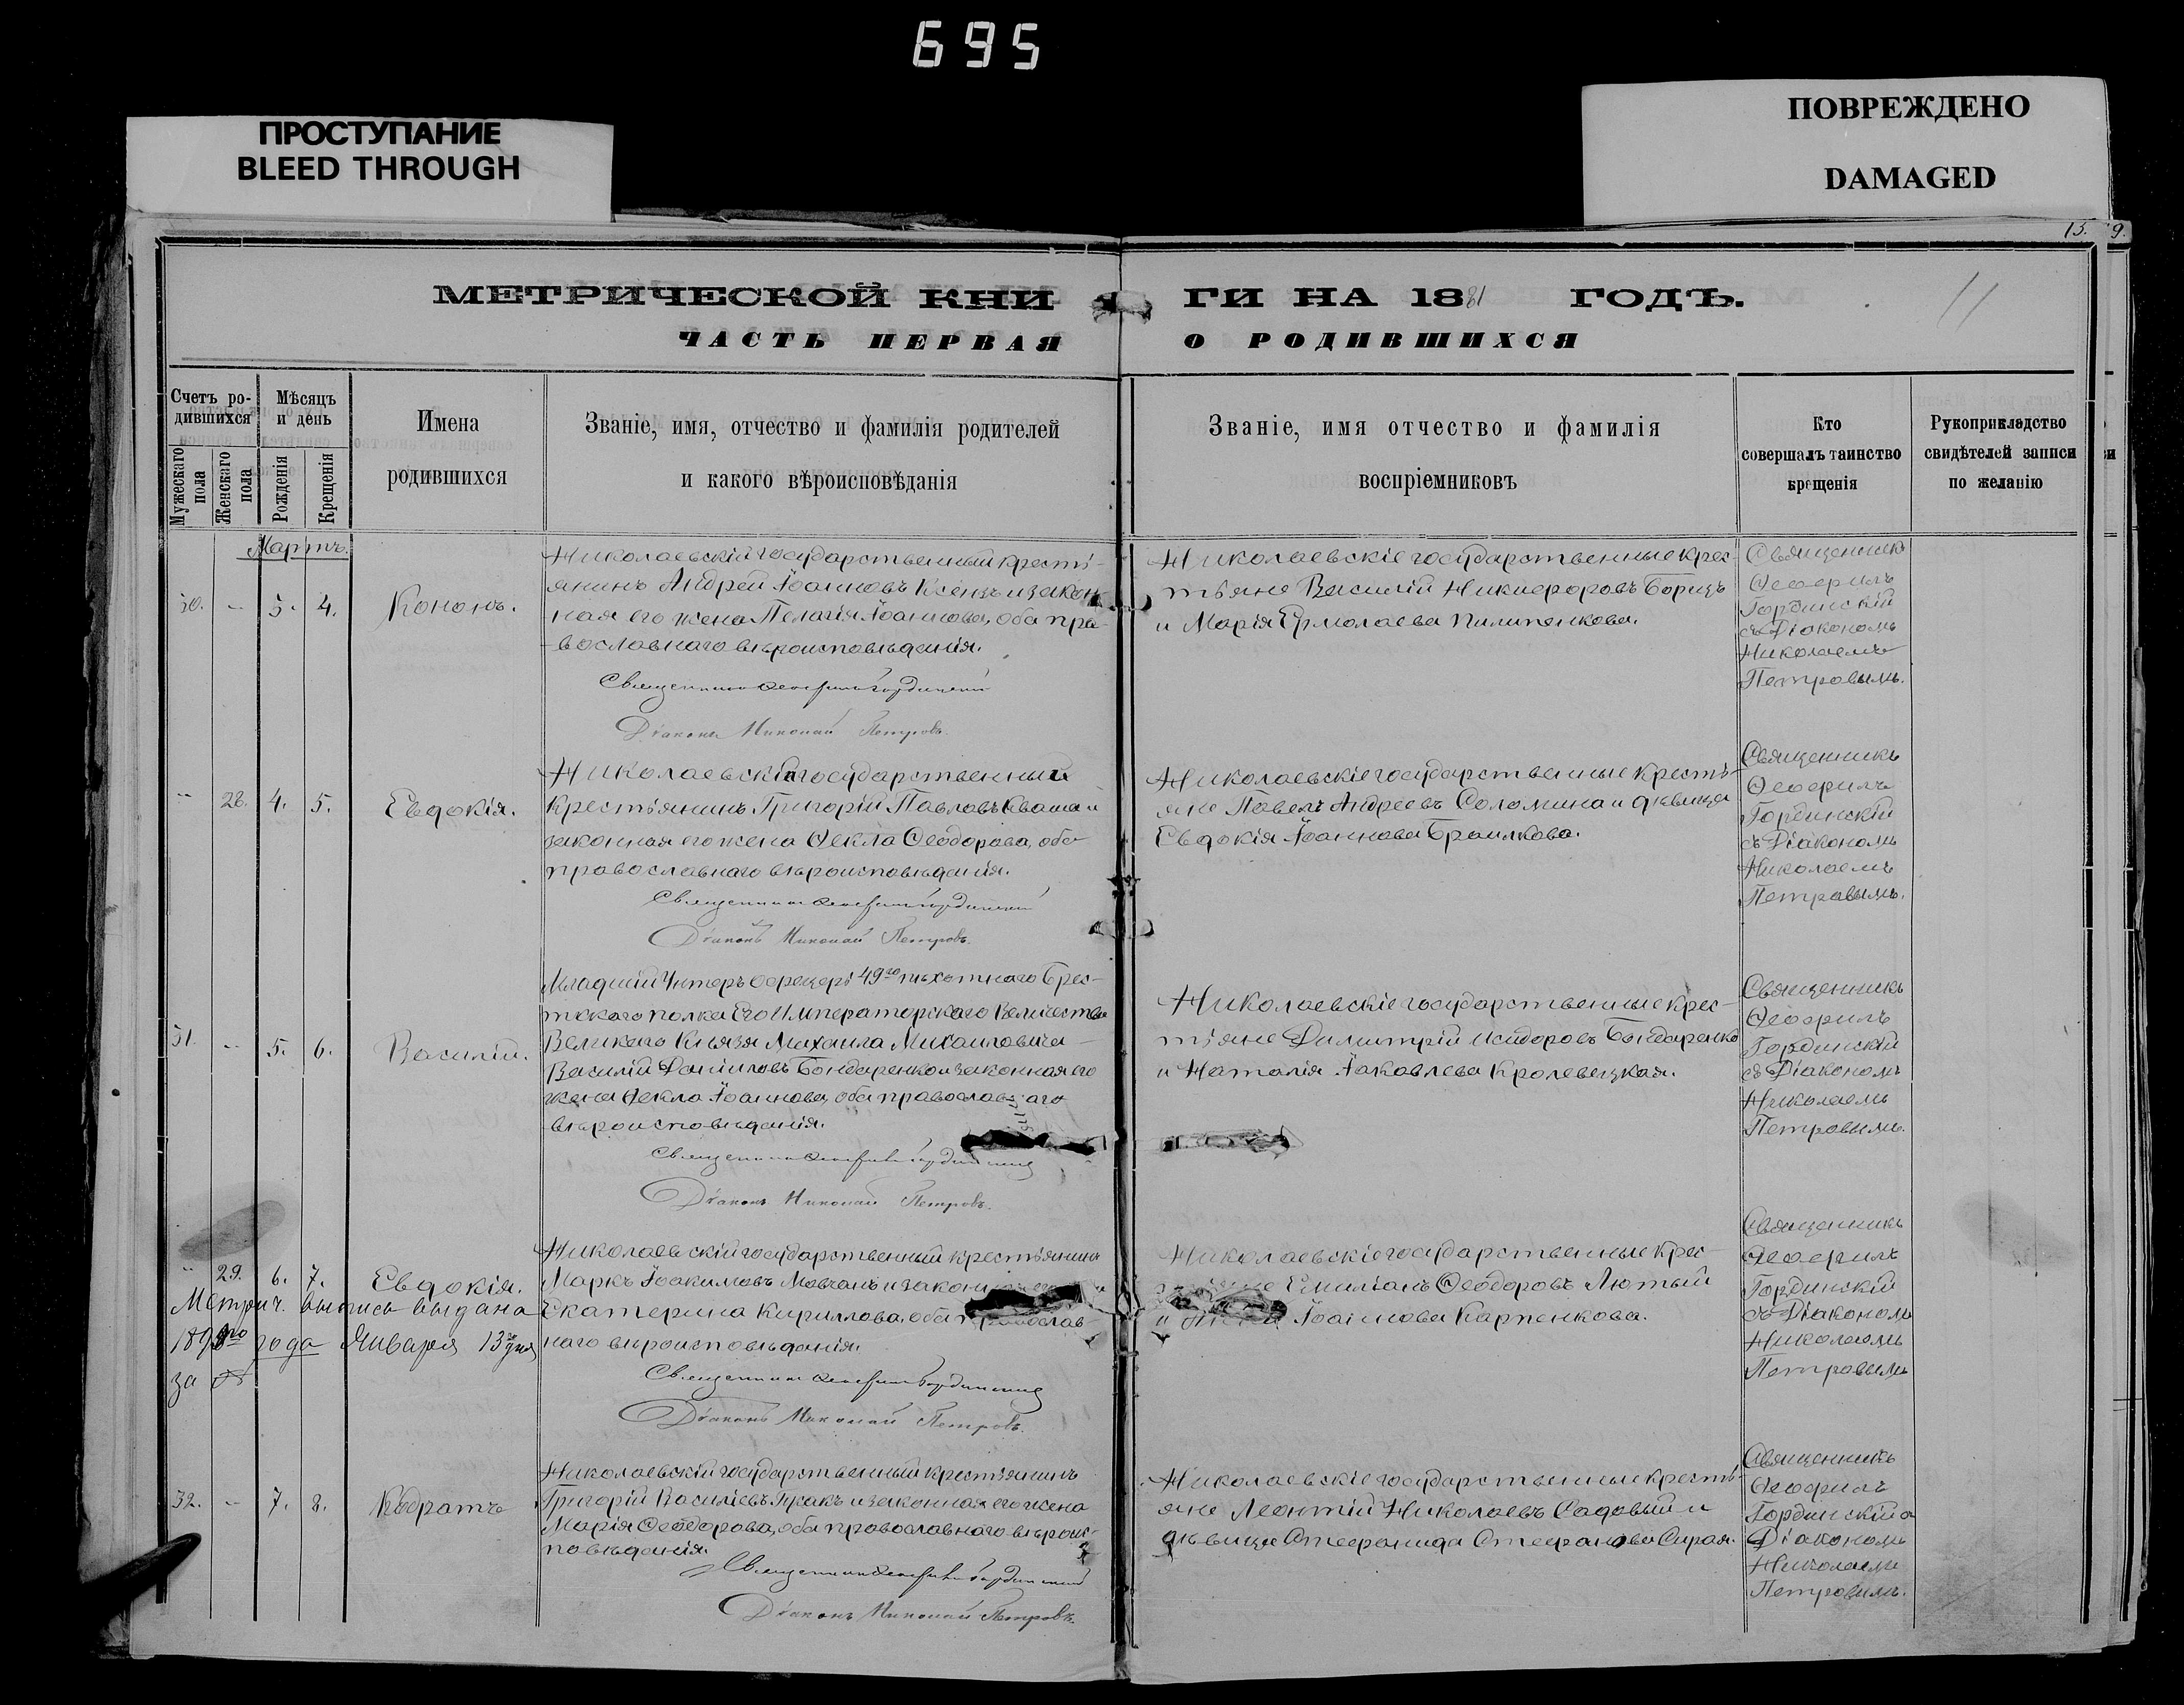 695
ПРОСТУПАНИЕ
BLEED THROUGH
ПОВРЕЖДЕНО
DAMAGED
15. 9.
11
МЕТРИЧЕСКОЙ КНИ ГИ НА 1881 ГОДЪ.
ЧАСТЬ ПЕРВАЯ О РОДИВШИХСЯ
Счетъ ро-
дившихся
Мужескаго
пола
Женскаго
пола
Мѣсяцъ
и день
Рожденія
Крещенія
Имена
родившихся
Званіе, имя, отчество и фамилія родителей
и какого вѣроисповѣданія
Званіе, имя отчество и фамилія
воспріемниковъ
Кто
совершалъ таинство
крещенія
Рукоприкладство
свидѣтелей записи
по желанію
Мартъ.
30. - 3. 4. Кононъ.
Николаевскій государственный кресть-
янинъ Андрей Іоанновъ Ксензъ и закон
ная его жена Пелагія Іоаннова, оба пра-
вославнаго вѣроисповѣданія.
Священникъ Ѳеофилъ Гординскій
Діаконъ Николай Петровъ.
Николаевскіе государственные крес-
тьяне Василій Никифоровъ Борицъ
и Марія Ермолаева Пилипенкова.
Священникъ
Ѳеофилъ
Гординскій
съ Діакономъ
Николаемъ
Петровымъ.
" 28. 4. 5. Евдокія.
Николаевскій государственный
крестьянинъ Григорій Павловъ Кваша и
законная его жена Ѳекла Ѳеодорова, оба
православнаго вѣроисповѣданія.
Священникъ Ѳеофилъ Гординскій
Діаконъ Николай Петровъ.
Николаевскіе государственные кресть-
яне Павелъ Андреевъ Соломина и дѣвица
Евдокія Іоаннова Браилкова.
Священникъ
Ѳеофилъ
Гординскій
съ Діакономъ
Николаемъ
Петровымъ.
31. - 5. 6. Василій.
Младшій Унтеръ Офицеръ 49го пѣхотнаго Брес-
тскаго полка Его Императорскаго Величества
Великаго Князя Михаила Михаиловича
Василій Даніиловъ Бондаренко и законная его
жена Ѳекла Іоаннова, оба православнаго
вѣроисповѣданія.
Священникъ Ѳеофилъ Гординскій
Діаконъ Николай Петровъ.
Николаевскіе государственные крес-
тьяне Димитрій Исидоровъ Бондаренко
и Наталія Іаковлева Кролевецкая.
Священникъ
Ѳеофилъ
Гординскій
съ Діакономъ
Николаемъ
Петровымъ.
" 29. 6. 7. Евдокія.
Метрич. выпись выдана
года Января 13го дня
за №
Николаевскій государственный крестьянинъ
Маркъ Іоакимовъ Мовчанъ и законная его
Екатерина Кириллова, оба православ-
наго вѣроисповѣданія.
Священникъ Ѳеофилъ Гординскій
Діаконъ Николай Петровъ.
Николаевскіе государственные крес-
Емиліанъ Ѳеодоровъ Лютый
и Іоаннова Карпенкова.
Священникъ
Ѳеофилъ
Гординскій
съ Діакономъ
Николаемъ
Петровымъ
32. - 7. 8. Кодратъ
Николаевскій государственный крестьянинъ
Григорій Василіевъ Пракъ и законная его жена
Марія Ѳеодорова, оба православнаго вѣроис-
повѣданія.
Священникъ Ѳеофилъ Гординскій
Діаконъ Николай Петровъ.
Николаевскіе государственные кресть-
яне Леонтій Николаевъ Садовый и
дѣвица Стефанида Стефанова Сирая.
Священникъ
Ѳеофилъ
Гординскій съ
Діакономъ
Николаемъ
Петровымъ.